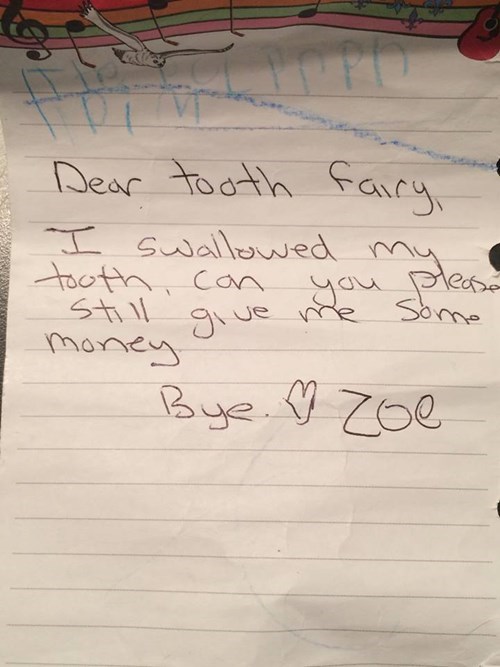 Dear tooth fairy,
I swallowed my
tooth, can you please
still give me some
money
Bye. ♡ Zoe